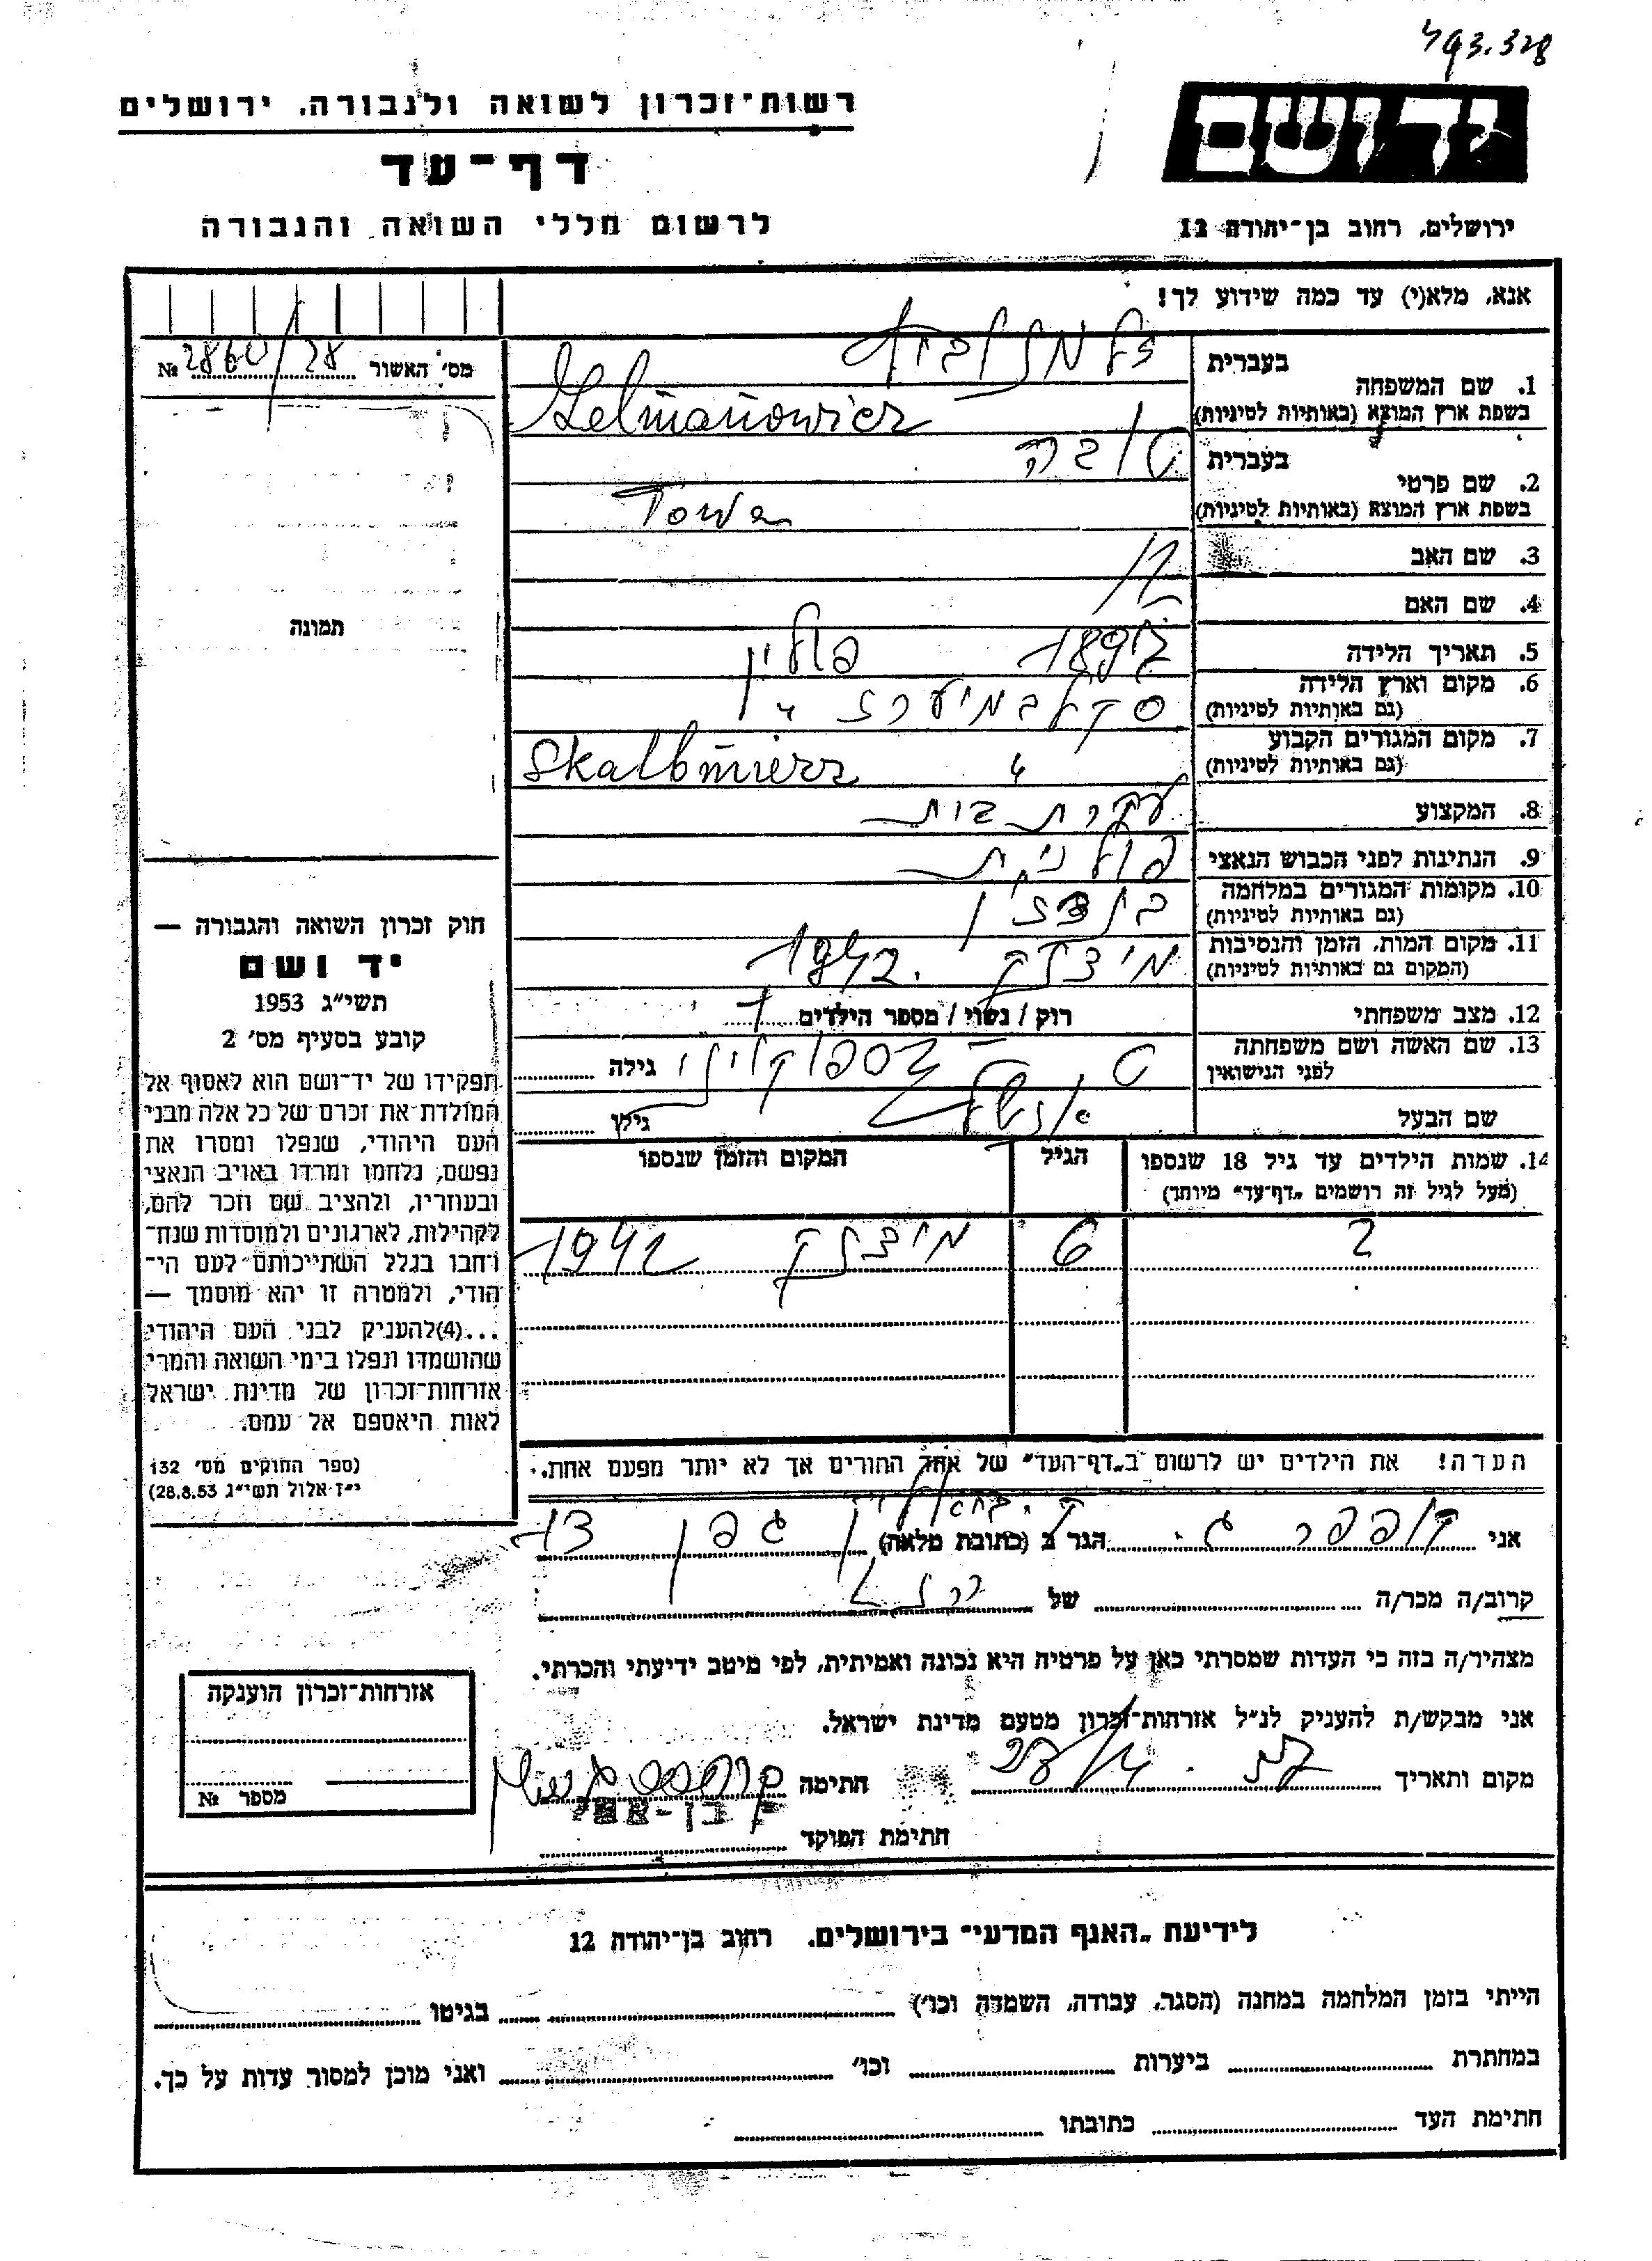 493.328
רשות־זכרון לשואה ולגבורה, ירושלים
דף־עד
לרשום חללי השואה והגבורה
יד ושם
ירושלים, רחוב בן־יהודה 12
אנא, מלא(י) עד כמה שידוע לך!
מס׳ האשור 2860/28 №
תמונה
1. שם המשפחה
בעברית זלמנוביץ
בשפת ארץ המוצא (באותיות לטיניות) Zelmanowicz
2. שם פרטי
בעברית טובה
בשפת ארץ המוצא (באותיות לטיניות) Towa
3. שם האב
4. שם האם
5. תאריך הלידה 1897 פולין
6. מקום וארץ הלידה
(גם באותיות לטיניות) סקלבמיערז "
7. מקום המגורים הקבוע
(גם באותיות לטיניות) " Skalbmierz
8. המקצוע עקרת בית
9. הנתינות לפני הכבוש הנאצי פולנית
10. מקומות המגורים במלחמה
(גם באותיות לטיניות)
11. מקום המות, הזמן והנסיבות
(המקום גם באותיות לטיניות) 1942
12. מצב משפחתי רוק / נשוי / מספר הילדים
13. שם האשה ושם משפחתה
לפני הנישואין גילה
שם הבעל גילו
14. שמות הילדים עד גיל 18 שנספו
(מעל לגיל זה רושמים „דף־עד״ מיוחד)
הגיל
המקום והזמן שנספו
2 6 1942
הערה! את הילדים יש לרשום ב„דף־העד״ של אחד ההורים אך לא יותר מפעם אחת.
חוק זכרון השואה והגבורה —
יד ושם
תשי״ג 1953
קובע בסעיף מס׳ 2
תפקידו של יד־ושם הוא לאסוף אל
המולדת את זכרם של כל אלה מבני
העם היהודי, שנפלו ומסרו את
נפשם, נלחמו ומרדו באויב הנאצי
ובעוזריו, ולהציב שם וזכר להם,
לקהילות, לארגונים ולמוסדות שנח־
רבו בגלל השתייכותם לעם הי־
הודי, ולמטרה זו יהא מוסמך —
...(4)להעניק לבני העם היהודי
שהושמדו ונפלו בימי השואה והמרי
אזרחות־זכרון של מדינת ישראל
לאות היאספם אל עמם.
(ספר החוקים מס׳ 132
י״ז אלול תשי״ג 28.8.53)
אני קופפר ג. הגר ב (כתובת מלאה) גפן
קרוב/ה מכר/ה של
מצהיר/ה בזה כי העדות שמסרתי כאן על פרטיה היא נכונה ואמיתית, לפי מיטב ידיעתי והכרתי.
אני מבקש/ת להעניק לנ״ל אזרחות־זכרון מטעם מדינת ישראל.
מקום ותאריך חתימה
חתימת הפוקד
אזרחות־זכרון הוענקה
מספר №
לידיעת „האגף המדעי״ בירושלים, רחוב בן־יהודה 12
הייתי בזמן המלחמה במחנה (הסגר, עבודה, השמדה וכו׳) בגיטו
במחתרת ביערות וכו׳ ואני מוכן למסור עדות על כך.
חתימת העד כתובתו